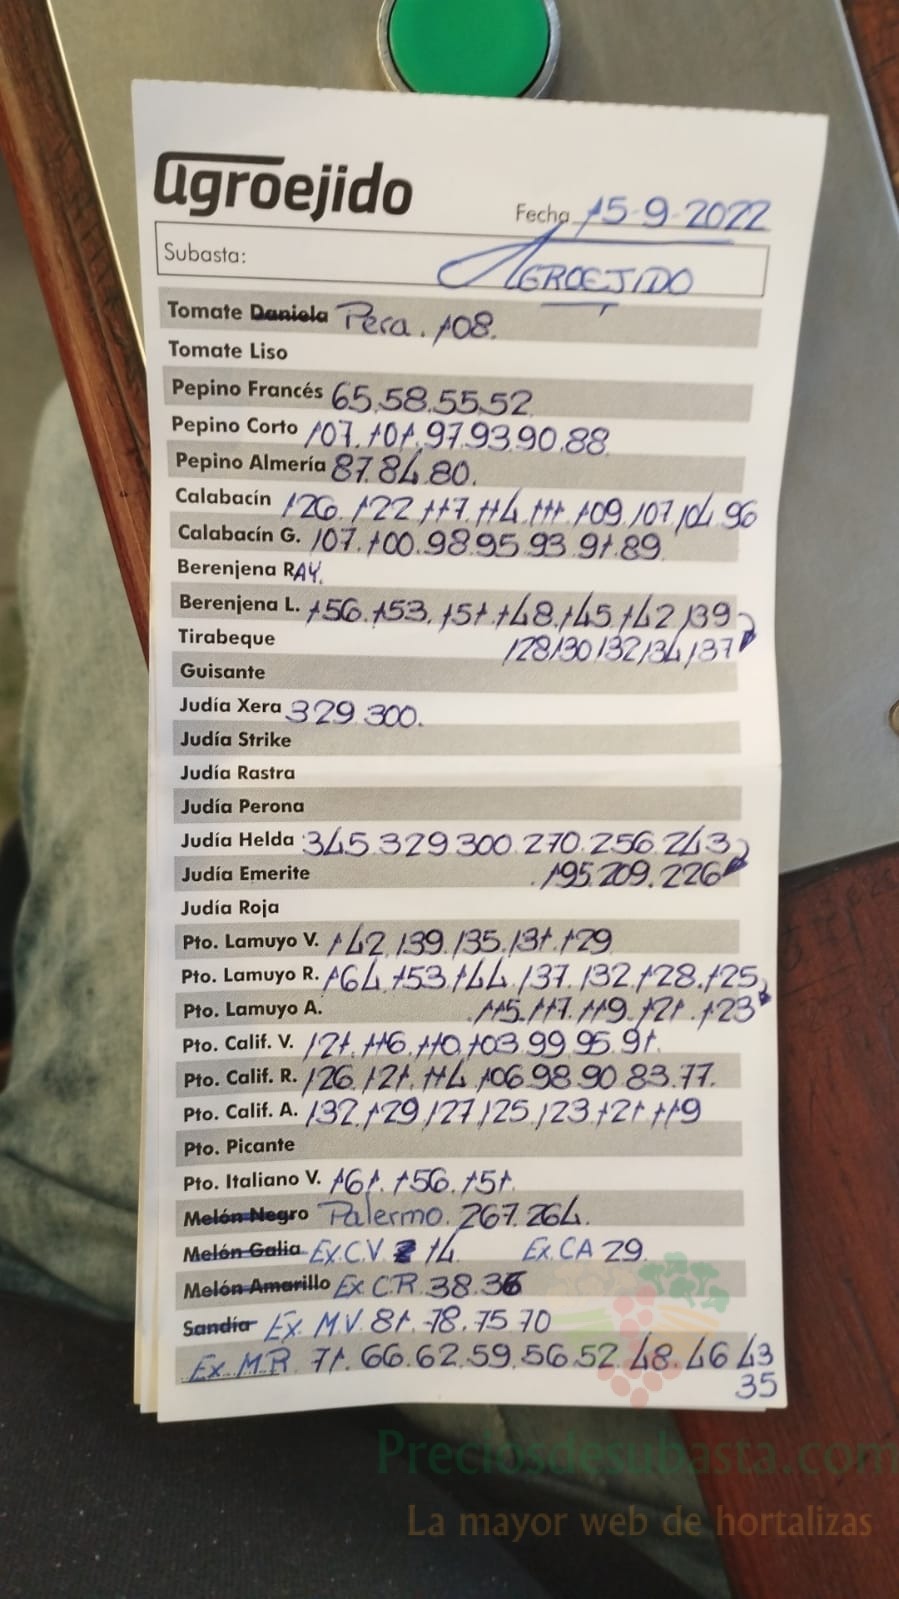 agroejido
Fecha 15-9-2022
Subasta: AGROEJIDO
Tomate Daniela Pera. 108.
Tomate Liso
Pepino Francés 65.58.55.52
Pepino Corto 107.101.97.93.90.88
Pepino Almería 87.84.80.
Calabacín 126.122.117.114.111.109.107.104.96
Calabacín G. 107.100.98.95.93.91.89
Berenjena RAY.
Berenjena L. 156.153.151.148.145.142.139
Tirabeque 128.130.132.134.137
Guisante
Judía Xera 329.300.
Judía Strike
Judía Rastra
Judía Perona
Judía Helda 345.329.300.270.256.243
Judía Emerite .195.209.226
Judía Roja
Pto. Lamuyo V. 142.139.135.131.129
Pto. Lamuyo R. 164.153.144.137.132.128.125
Pto. Lamuyo A. .115.117.119.121.123
Pto. Calif. V. 121.116.110.103.99.95.91.
Pto. Calif. R. 126.121.114.106.98.90.83.77.
Pto. Calif. A. 132.129.127.125.123.121.119
Pto. Picante
Pto. Italiano V. 161.156.151.
Melón Negro Palermo. 267.264.
Melón Galia Ex.C.V. 14 Ex.CA 29.
Melón Amarillo Ex C.R. 38.36
Sandía Ex. M.V. 81.78.75.70
Ex.M.R. 71.66.62.59.56.52.48.46.43
35
Preciosdesubasta.com
La mayor web de hortalizas